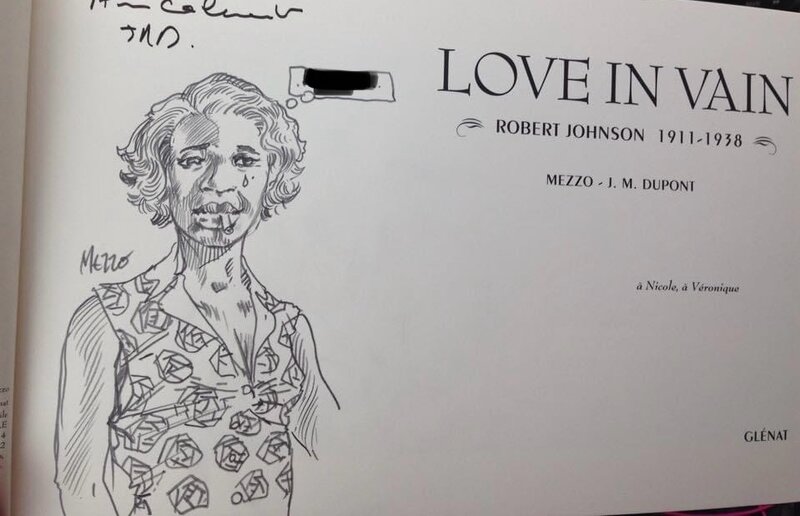 JMD.
MEZZO
LOVE IN VAIN
ROBERT JOHNSON 1911-1938
MEZZO - J. M. DUPONT
à Nicole, à Véronique
GLÉNAT